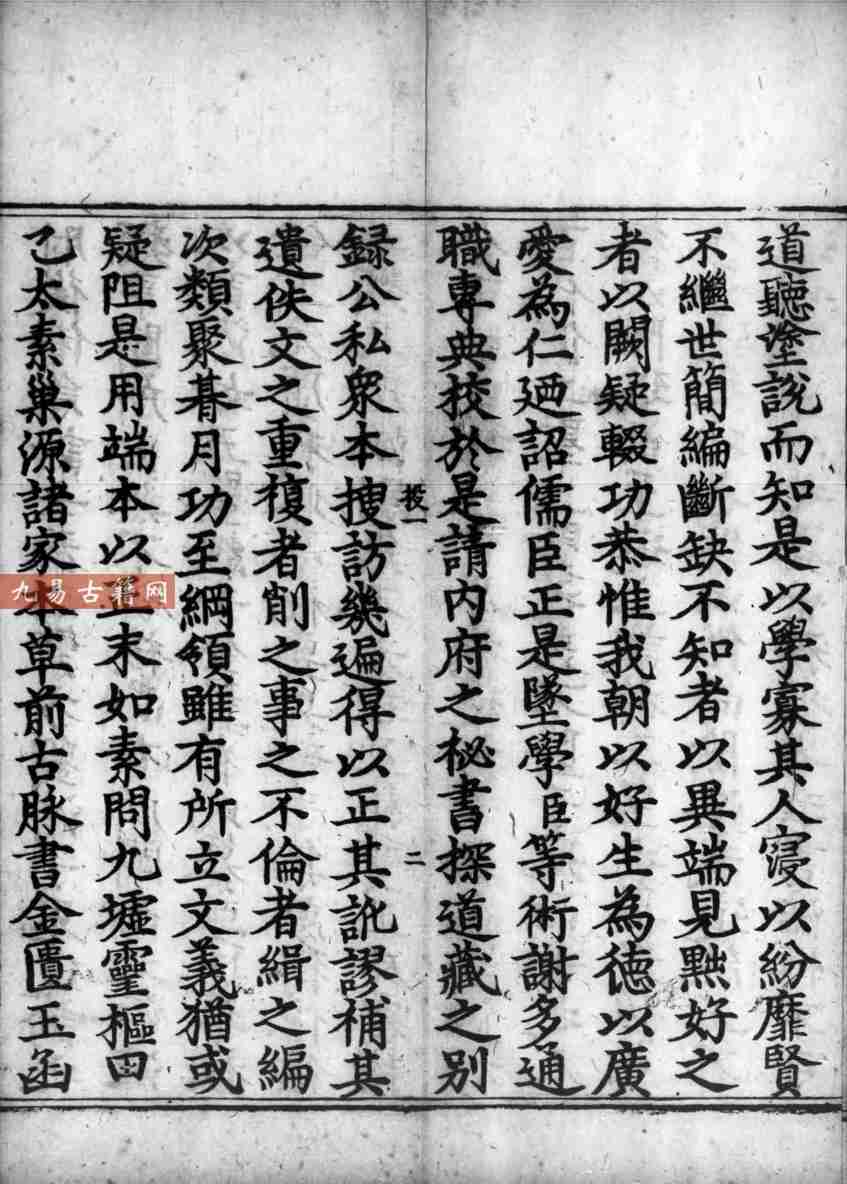 道聽塗說而知是以學寡其人寖以紛靡賢
不繼世簡編斷缺不知者以異端見黜好之
者以闕疑輟功恭惟我朝以好生為德以廣
愛為仁廼詔儒臣正是墜學臣等術謝多通
職專典校於是請內府之秘書探道藏之别
校一
二
録公私衆本搜訪幾遍得以正其訛謬補其
遺佚文之重複者削之事之不倫者緝之編
次類聚朞月功至綱領雖有所立文義猶或
疑阻是用端本以正末如素問九墟靈樞甲
乙太素巢源諸家本草前古脉書金匱玉函
九易古籍网